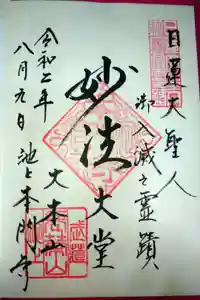 日蓮大聖人
御入滅之霊蹟
妙法
大堂
大本山
池上本門寺
令和二年
八月九日